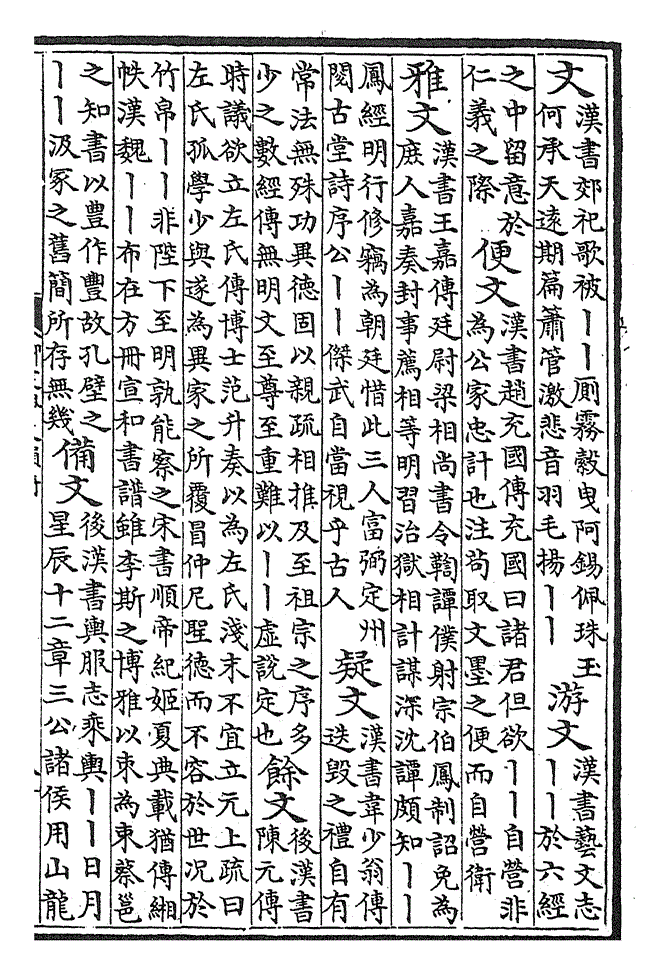 文
漢書郊祀歌被丨丨厠霧縠曳阿錫佩珠玉
何承天遠期篇蕭管激悲音羽毛揚丨丨
游文
漢書藝文志
丨丨於六經
之中留意於
仁義之際
便文
漢書趙充國傳充國曰諸君但欲丨丨自營非
為公家忠計也注茍取文墨之便而自營衛
雅文
漢書王嘉傳廷尉梁相尚書令鞫譚僕射宗伯鳳制詔免為
庶人嘉奏封事薦相等明習治獄相計謀深沈譚頗知丨丨
鳳經明行修竊為朝廷惜此三人富弼定州
閱古堂詩序公丨丨傑武自當視乎古人
疑文
漢書韋少翁傳
迭毀之禮自有
常法無殊功異德固以親疏相推及至祖宗之序多
少之數經傳無明文至尊至重難以丨丨虛說定也
餘文
後漢書
陳元傳
時議欲立左氏傳博士范升奏以為左氏淺末不宜立元上疏曰
左氏孤學少與遂為異家之所覆冒仲尼聖德而不容於世況於
竹帛丨丨非陛下至明孰能察之宋書順帝紀姬夏典載猶傳緗
帙漢魏丨丨布在方冊宣和書譜雖李斯之博雅以朿為束蔡邕
之知書以豐作豊故孔壁之
丨丨汲冢之舊簡所存無幾
備文
後漢書輿服志乘輿丨丨日月
星辰十二章三公諸侯用山龍